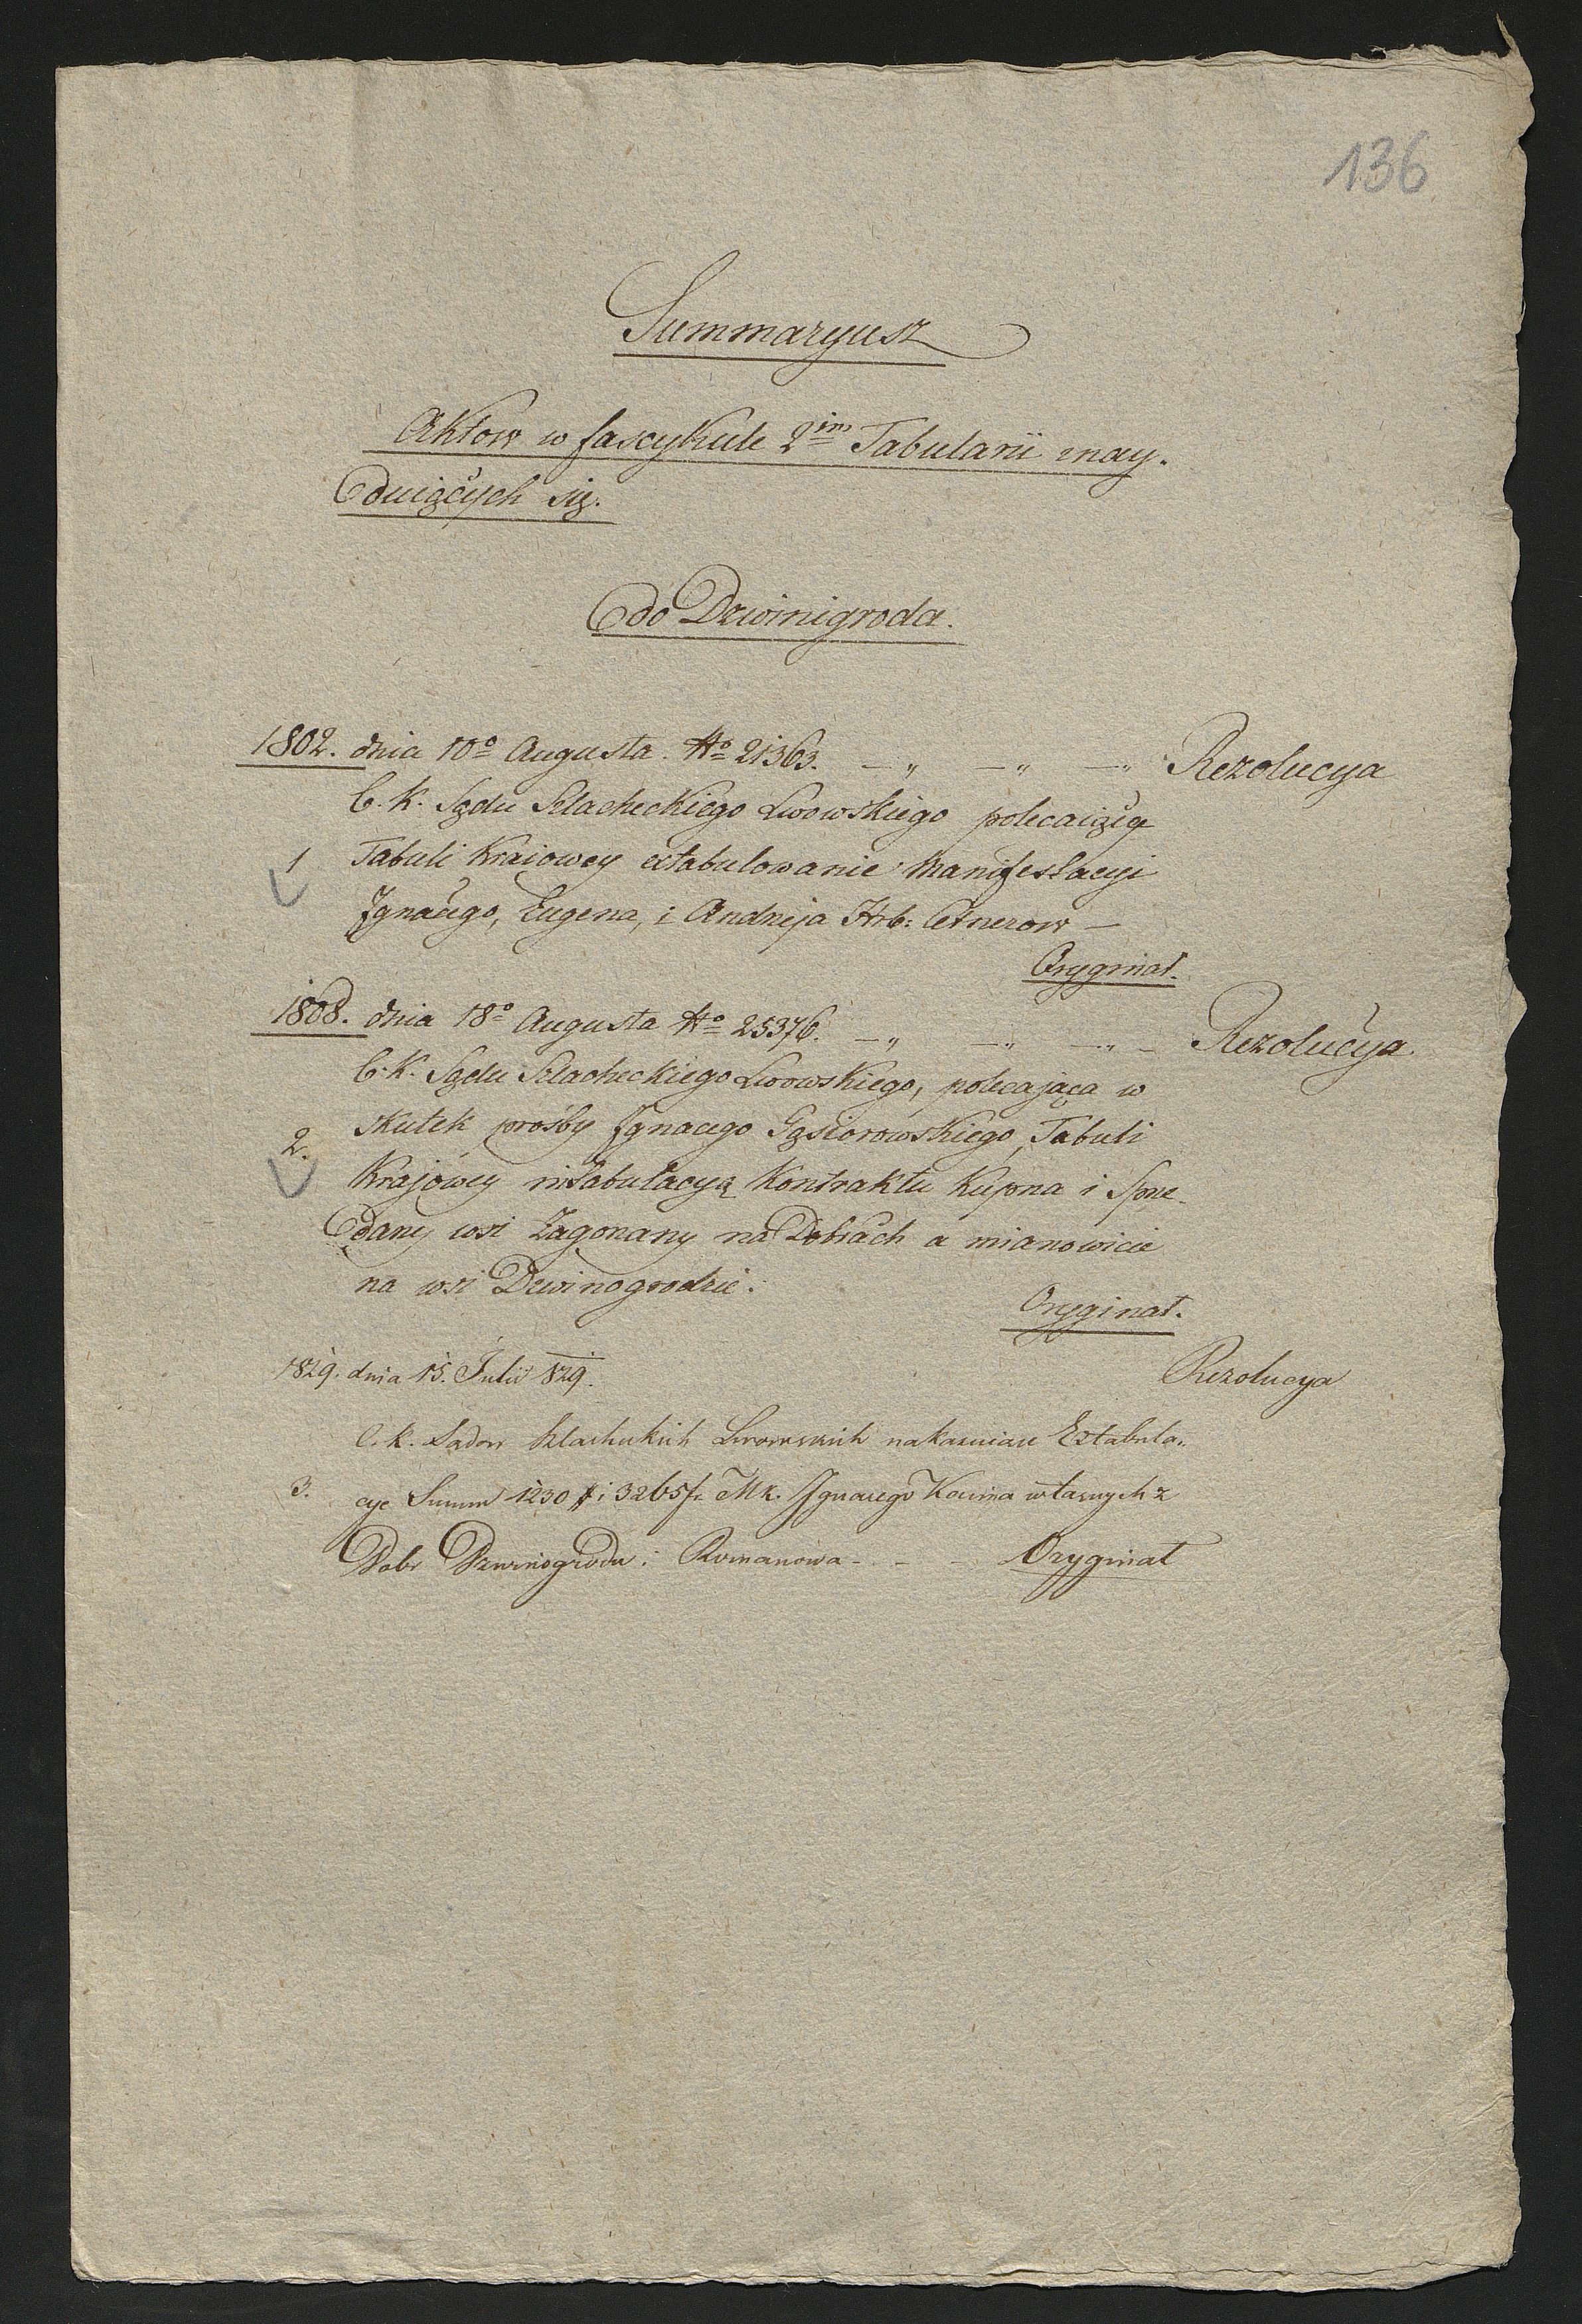 136
Summaryusz
Aktow w fascykule 2im Tabularii znay-
duiących się.
do Dzwinigroda.
1802. dnia 10o Augusta. No 21363. — „ — „ — „ Rezolucya
C. K. Sądu Szlacheckiego Lwowskiego polecaiące
1 Tabuli Kraiowey extabulowanie Manifestacyi
Ignacego, Eugena, i Andrzeja Hrb: Cetnerow —
Oryginał.
1808. dnia 18o Augusta No 25376. — „ — „ — „ — Rezolucya
C. K. Sądu Szlacheckiego Lwowskiego, polecająca w
skutek prośby Ignacego Gąsiorowskiego, Tabuli
2. Krajowey intabulacyą Kontraktu Kupna i Sprze-
dany wsi Zagonany na Dobrach a mianowicie
na wsi Dzwinogrodzie.
Oryginał.
1829. dnia 15. Julii 829. Rezolucya
C. k. Sądow Szlacheckich Lwowskich nakazuiące Extabula„
3. cyę Summ 1230 # i 3265 fr Mk. Ignacego własnych z
Dobr Dzwinogrodu i Romanowa - - - Oryginał